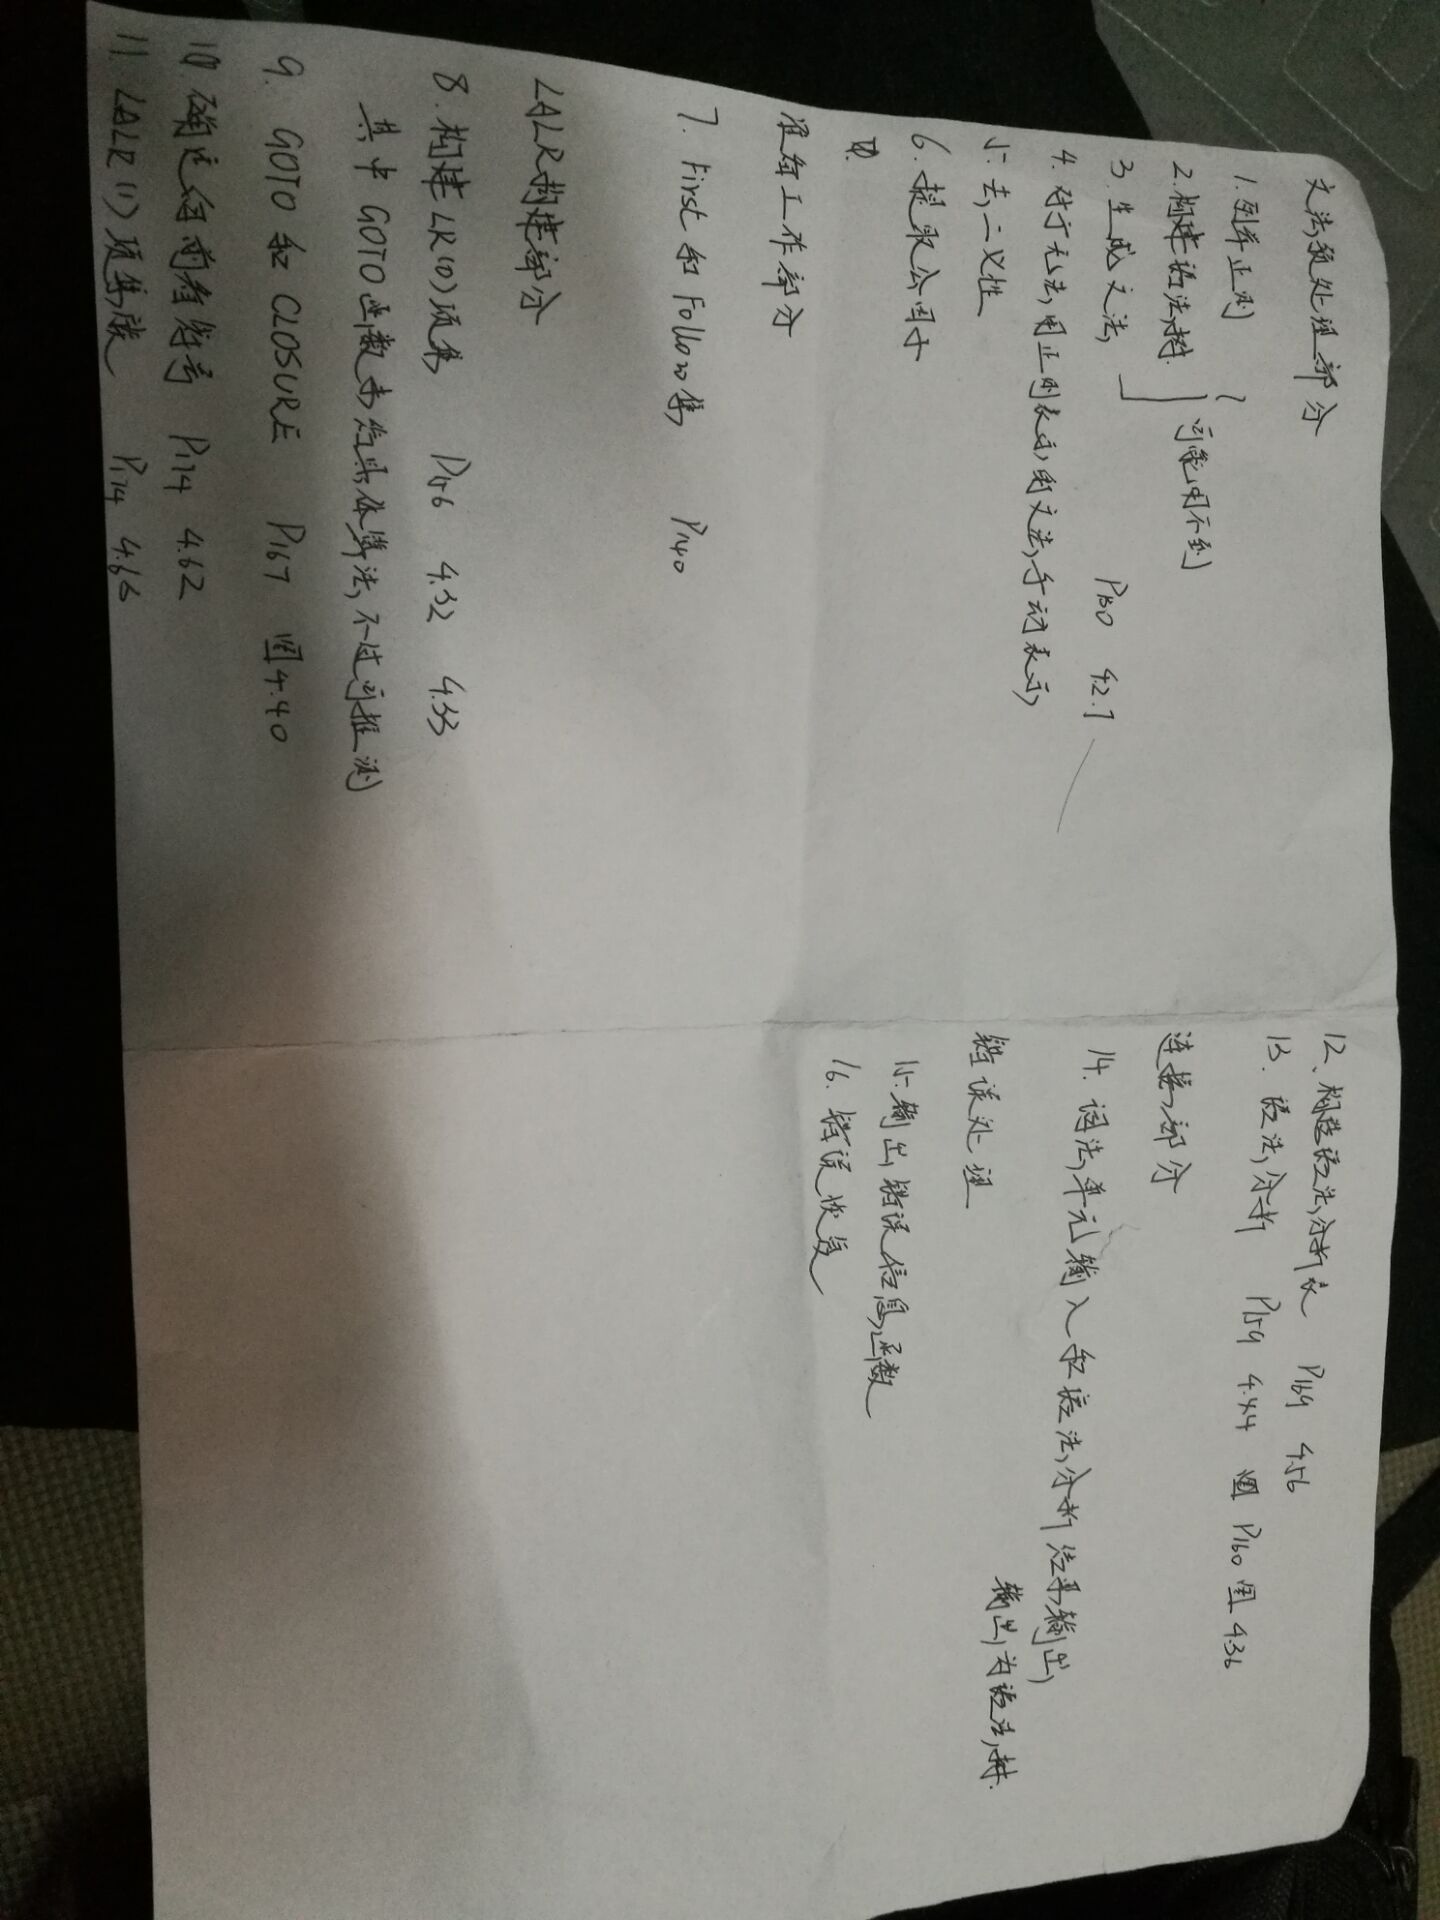 文法预处理部分
1. 列举正则
2. 构建语法树.
可能用不到
3. 生成文法
P130 4.2.7
4. 对于无法用正则表示的文法手动表示
5. 去二义性
6. 提取公因子
准备工作部分
7. First 和 Follow集 P140
LALR构建部分
8. 构建LR(0)项集 P156 4.32 4.33
其中 GOTO函数未给具体算法,不过可推测
9. GOTO 和 CLOSURE P167 图4.40
10 确定向前看符号 P174 4.62
11. LALR(1)项集族 P174 4.66
12. 构造语法分析表 P169 4.56
13. 语法分析 P159 4.44 图 P160 图 4.36
连接部分
14. 词法单元输入和语法分析结果输出,
输出为语法树.
错误处理
15. 输出错误信息函数
16. 错误恢复